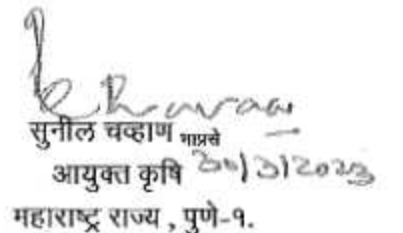 सुनील चव्हाण भाप्रसे
आयुक्त कृषि 30/3/2023
महाराष्ट्र राज्य , पुणे-१.